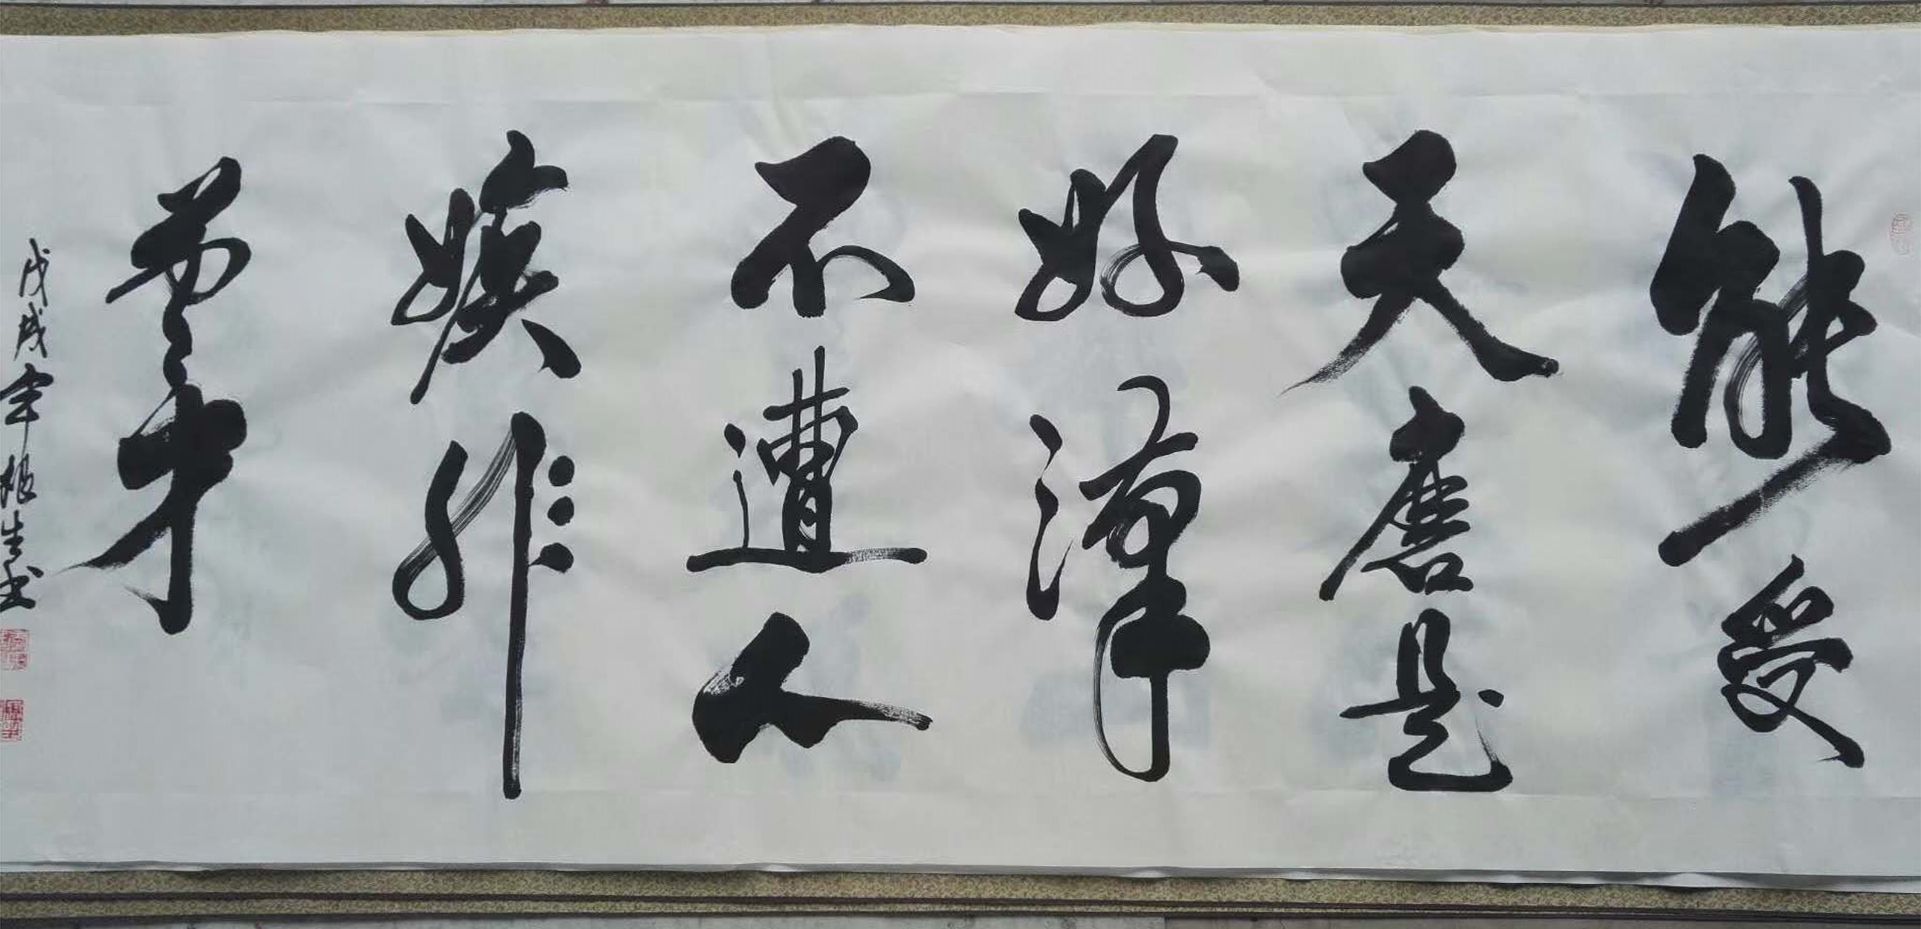 能受
天磨是
好漢
不遭人
嫉非
英才
戊戌 根生书